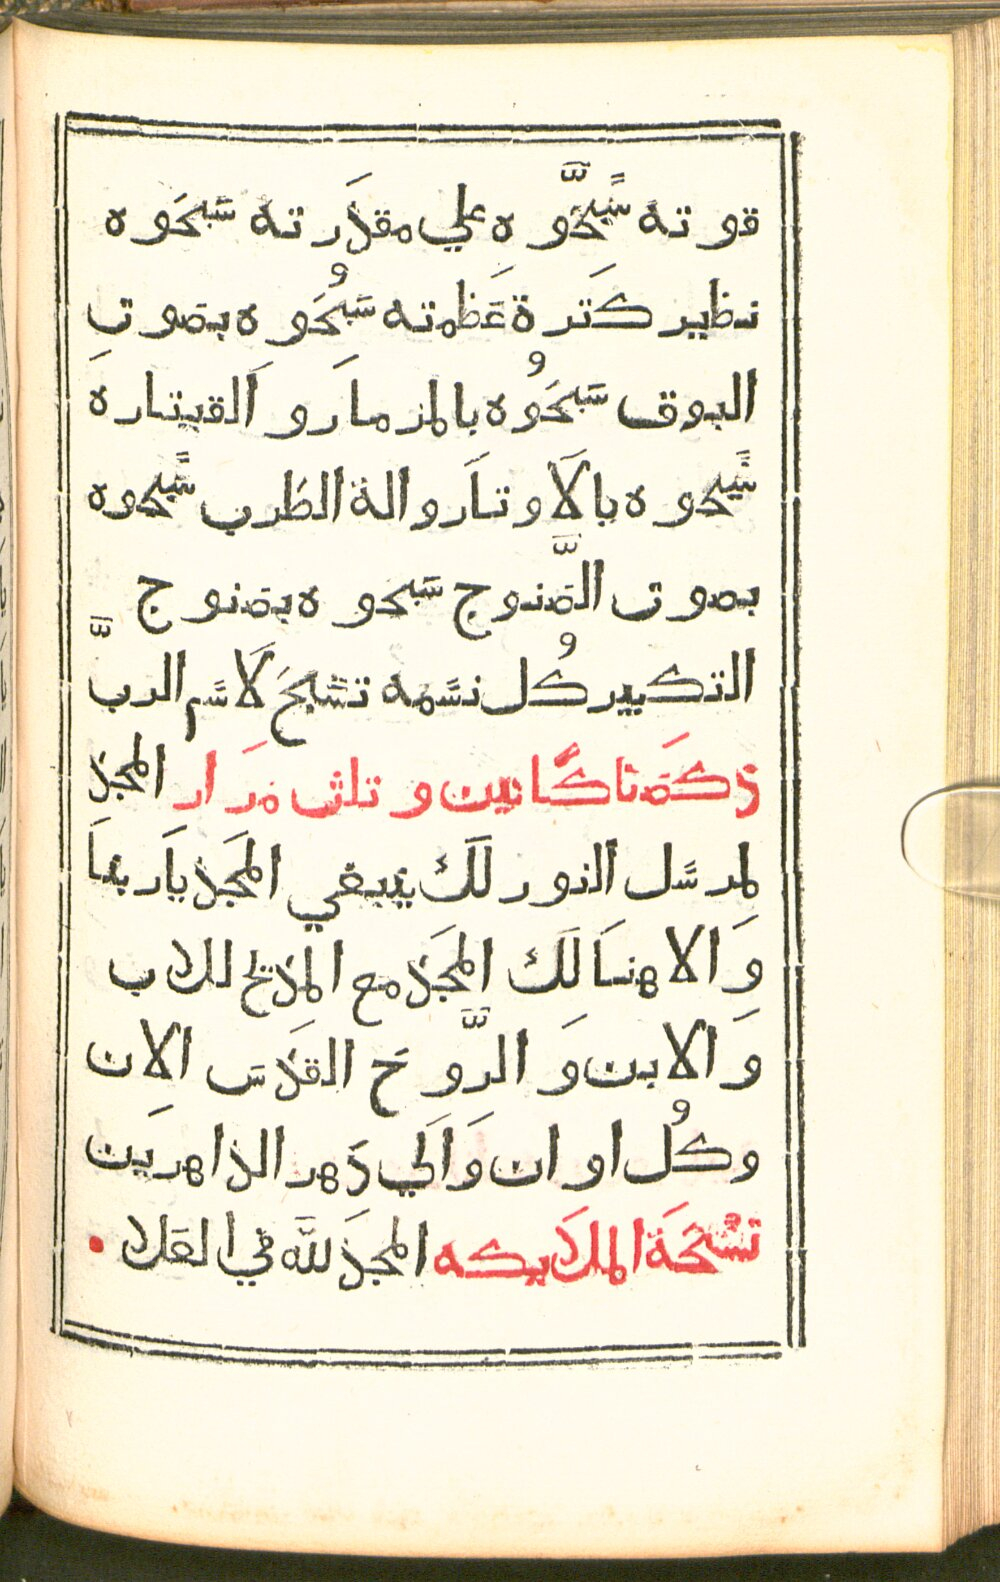 قوته سَبِّحَّوه علي مقدَرته سَبحَوه
نظير كَترة عَظمته سَبحَوُه بصوتِ
البوق سَبحَوُه بالمزمارَ والَقيتاره
سَبحوه بالاَوتاَر والة الطرب سَبحوه
بصوت الصَّنوج سَبحوه بصَنوج
التكبير كُل نسَمه تسَبحَ لاَسَم الربَّ
المجد
لمرسَل النور لَك ينبغي المَجَد ياَربناَ
وَالاهنَا لَك المَجَد مع المدَيح للاب
وَالابن وَالرَّوحَ القدَسَ الاِن
وكُل اوان وَاَلي دَهر الداهرَين
تسَبحَة الملاَيكه المجدَ للَّه في العَلا